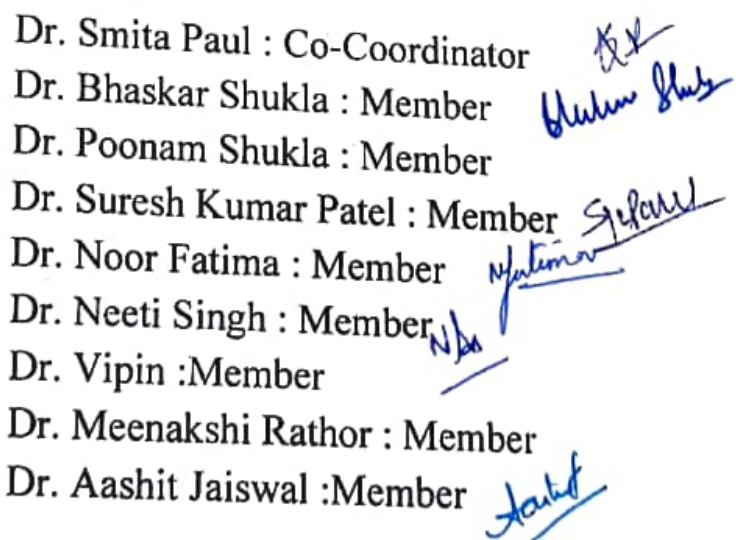 Dr. Smita Paul : Co-Coordinator
Dr. Bhaskar Shukla : Member
Dr. Poonam Shukla : Member
Dr. Suresh Kumar Patel : Member
Dr. Noor Fatima : Member
Dr. Neeti Singh : Member
Dr. Vipin :Member
Dr. Meenakshi Rathor : Member
Dr. Aashit Jaiswal :Member